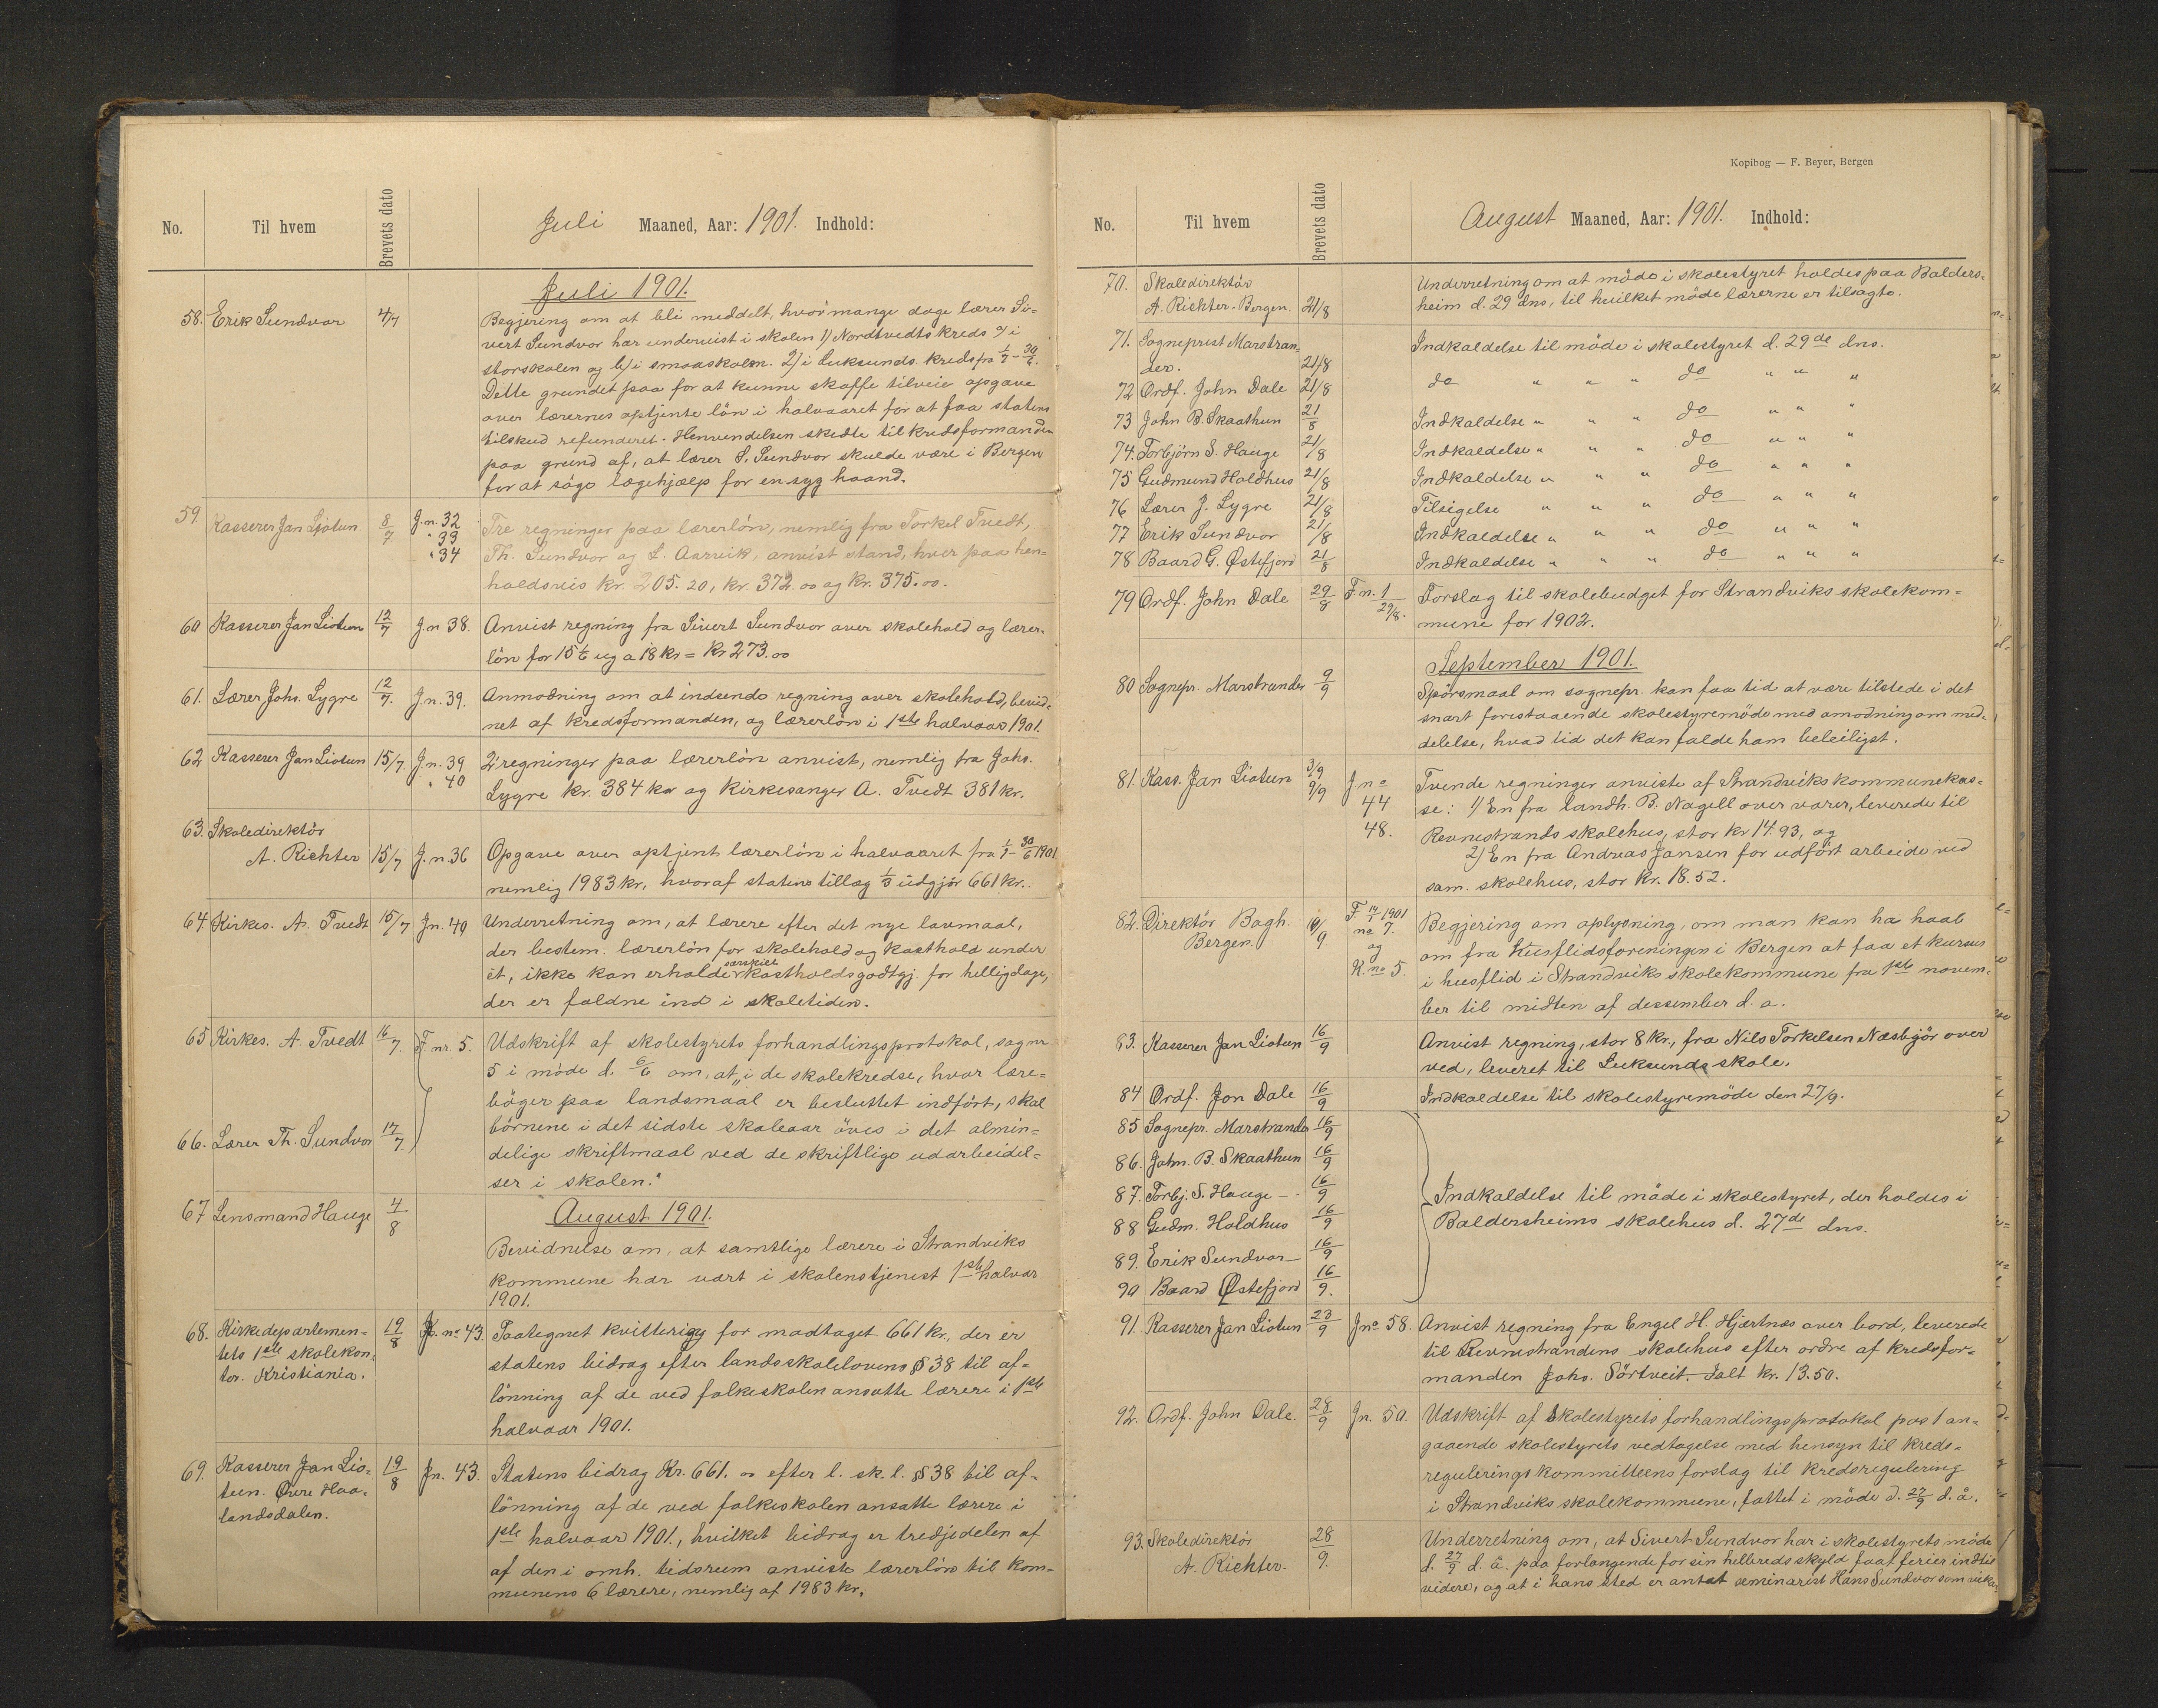 No. Til hvem Brevets dato Juli Maaned, Aar: 1901. Indhold:
Juli 1901.
58. Erik Sundvor 4/7 Begjering om at bli meddelt, hvor mange dage lærer Si-
vert Sundvor har undervist i skolen 1) Nordtvedts kreds a) i
storskolen og b) i smaaskolen. 2) i Luksunds kreds fra 1/1 - 30/6.
Dette grundet paa for at kunne skaffe tilveie opgave
over lærernes optjente lön i halvaaret for at faa statens
tilskud refunderet. Henvendelsen skedte til kredsformanden
paa grund af, at lærer S. Sundvor skulde være i Bergen
for at söge lægehjælp for en syg haand.
59. Kasserer Jan Liotun 8/7 J.n. 32 Tre regninger paa lærerlön, nemlig fra Torkel Tvedt,
" 33
" 34 Th. Sundvor og L. Aarvik, anvist stand, hver paa hen-
holdsvis kr. 205.20, kr. 372.00 og kr. 375.00.
60 Kasserer Jan Liotun 12/7 J.n 38. Anvist regning fra Sivert Sundvor over skolehold og lærer-
lön for 15 1/6 ug a 18 kr = Kr 273.00
61. Lærer Johs. Lygre 12/7. J.n. 39. Anmodning om at indsende regning over skolehold, bevid-
net af kredsformanden, og lærerlön i 1ste halvaar 1901.
62 Kasserer Jan Liotun 15/7. J.n. 39 2 regninger paa lærerlön anvist, nemlig fra Johs.
" 40 Lygre kr. 384 kr og Kirkesanger A. Tvedt 381 kr.
63. Skoledirektör
A. Richter 15/7 J.n. 36 Opgave over optjent lærerlön i halvaaret fra 1/1 - 30/6 1901
nemlig 1983 kr, hvoraf statens tillæg 1/3 udgjör 661 kr.
64 Kirkes. A. Tvedt 15/7 Jn. 40 Underretning om, at lærere efter det nye lavmaal,
der bestem. lærerlön for skolehold og kosthold under
ét, ikke kan erholde særskilt kostholdsgodtgj. for helligdage,
der er faldne ind i skoletiden.
65 Kirkes. A. Tvedt 16/7. F nr. 5. Udskrift af skolestyrets forhandlingsprotokol, sag nr
5 i möde d. 6/6 om, at „i de skolekredse, hvor lære-
böger paa landsmaal er besluttet indfört, skal
66. Lærer Th. Sundvor 17/7. börnene i det sidste skoleaar öves i det almin-
delige skriftmaal ved de skriftlige udarbeidel-
ser i skolen."
67 Lensmand Hauge 4/8 August 1901.
Bevidnelse om, at samtlige lærere i Strandviks
kommune har vært i skolens tjenest 1ste halvår
1901.
68. Kirkedepartemen- 19/8 K. no 43. Paategnet kvittering for modtaget 661 kr, der er
tets 1ste skolekon- statens bidrag efter landsskolelovens § 38 til af-
tor. Kristiania. lönning af de ved folkeskolen ansatte lærere i 1ste
halvaar 1901.
69. Kasserer Jan Lio- 19/8 Jn. 43. Statens bidrag Kr. 661.00 efter l. sk. l. § 38 til af-
tun. Øvre Haa- lönning af de ved folkeskolen ansatte lærere i
landsdalen. 1ste halvaar 1901, hvilket bidrag er tredjedelen af
af den i omh. tidsrum anviste lærerlön til kom-
munens 6 lærere, nemlig af 1983 kr.
Kopibog — F. Beyer, Bergen
No. Til hvem Brevets dato August Maaned, Aar: 1901. Indhold:
70. Skoledirektör Underretning om at möde i skolestyret holdes paa Balders-
A. Richter. Bergen. 21/8 heim d. 29 dns, til hvilket möde lærerne er tilsagte.
71. Sogneprest Marstran- Indkaldelse til möde i skolestyret d. 29de dns.
der. 21/8
72 Ordf. John Dale 21/8 do " " " do " " "
73 John B. Skaathun 21/8 Indkaldelse " " " do " " "
74. Torbjörn S. Hauge 21/8 Indkaldelse " " " do " " "
75 Gudmund Holdhus 21/8 Indkaldelse " " " do " " "
76 Lærer J. Lygre 21/8 Tilsigelse " " " do " " "
77 Erik Sundvor 21/8 Indkaldelse " " " do " " "
78 Baard G. Østefjord 21/8 Indkaldelse " " " do " " "
79 Ordf. John Dale 29/8 F n. 1 29/8. Forslag til skolebudget for Strandviks skolekom-
mune for 1902.
September 1901.
80 Sognepr. Marstrander 9/9 Spörsmaal om sognepr. kan faa tid at være tilstede i det
snart forestaaende skolestyremöde med amodning om med-
delelse, hvad tid det kan falde ham beleiligst.
81. Kass. Jan Liotun 3/9 9/9 J no 44 48. Tvende regninger anviste af Strandviks kommunekas-
se: 1) En fra landh. B. Nagell over varer, leverede til
Revnestrands skolehus, stor kr 14.93, og
2) En fra Andreas Jansen for udfört arbeide ved
sam. skolehus, stor Kr. 18.52.
82. Direktör Bøgh. 10/9 F. 14/1 1901 no 7. Begjering om oplysning, om man kan ha haab
Bergen. og K. no 5. om fra Husflidsforeningen i Bergen at faa et kursus
i husflid i Strandviks skolekommune fra 1ste novem-
ber til midten af dessember d. a.
83. Kasserer Jan Liotun 16/9 Anvist regning, stor 8 Kr., fra Nils Torkelsen Næsbgör over
ved, leveret til Luksunds skole.
84 Ordf. Jon Dale 16/9 Indkaldelse til skolestyremöde den 27/9.
85 Sognepr. Marstrander 16/9
86. John. B. Skaathun 16/9
87. Torbj. S. Hauge 16/9 Indkaldelse til möde i skolestyret, der holdes i
88 Gudm. Holdhus 16/9 Baldersheims skolehus d. 27de dns.
89. Erik Sundvor 16/9
90 Baard Østefjord 16/9.
91. Kasserer Jan Liotun 23/9 J no 58. Anvist regning fra Engel H. Hjærtnæs over bord, leverede
til Revnestrandens skolehus efter ordre af kredsfor-
manden Johs. Sörtveit. Ialt kr. 13.50.
92. Ordf. John Dale. 28/9 Jn. 50. Udskrift af skolestyrets forhandlingsprotokol pos 1 an-
gaaende skolestyrets vedtagelse med hensyn til kreds-
reguleringskommitteens forslag til kredsregulering
i Strandviks skolekommune, fattet i möde d. 27/9 d. å.
93. Skoledirektör 28/9. Underretning om, at Sivert Sundvor har i skolestyrets möde
A. Richter. d. 27/9 d. å. paa forlangende for sin helbreds skyld faat ferier indtil
videre, og at i hans sted er antat seminarist Hans Sundvor som vikar